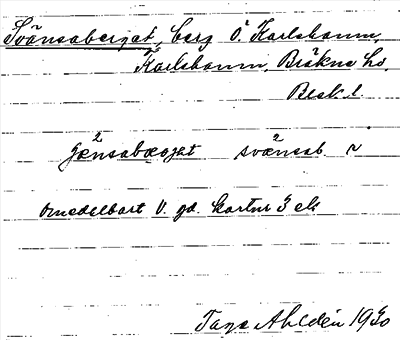 Svänsaberget, berg Ö. Karlshamn,
Karlshamn, Bräkne hd,
Blek. l.
jænsabærjet svænsab. ~
omedelbart V. gd. kartnr 3 ek
Tage Ahldén 1930